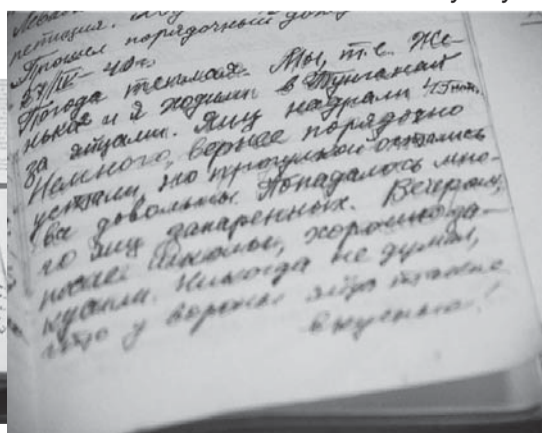 репиция.
Прошел порядочный дождь
27/IV- 40 г.
Погода теплая. Мы, т.е. Же-
нька и я ходили в
за яйцами. Яиц набрали 45 шт.
Немного, вернее порядочно
устали, но прогулкой остались
все довольны. Попадалось мно-
го яиц запаренных. Вечером,
после школы, хорошо
кушали. Никогда не думал,
что у вороны яйца такие
вкусные!